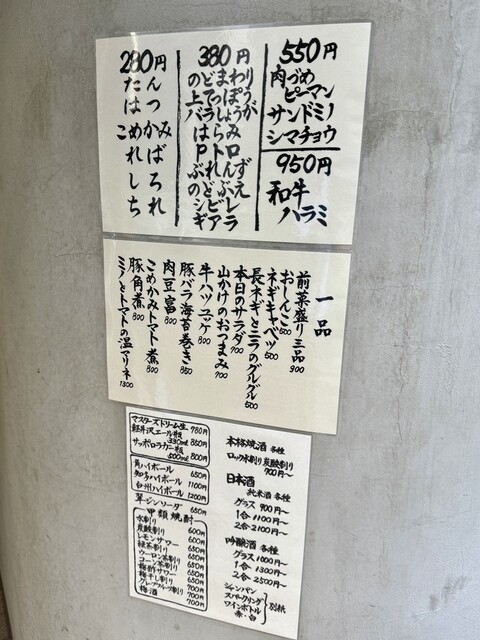 550円
肉づめ
ピーマン
サンドミノ
シマチョウ
950円
和牛
ハラミ
380円
280円
たん
はつ
こめかみ
めれ
一品
前菜盛り三品 900
おしんこ 500
ネギキャベツ 500
長ネギとニラのグルグル 500
本日のサラダ 700
山かけのおつまみ 700
牛ハツユッケ 800
豚バラ海苔巻き 850
肉豆富 800
こめかみトマト煮 800
豚角煮 800
ミノとトマトの温マリネ 1300
マスターズドリーム生 780円
軽井沢エール 330ml 850円
サッポロラガー 500ml 800円
角ハイボール 650円
知多ハイボール 1100円
白州ハイボール 1200円
翠ジンソーダ 650円
甲類焼酎
水割り 600円
炭酸割り 600円
レモンサワー 650
緑茶割り 650
ウーロン茶割り 650
コーン茶割り 650
梅酢サワー 650
梅干し割り 650
グレープフルーツ割り 700
梅酒 700
本格焼酒 各種
ロック水割り炭酸割り
700円〜
日本酒
純米酒 各種
グラス 900円〜
1合 1100円〜
2合 2100円〜
吟醸酒 各種
グラス 1000円〜
1合 1300円〜
2合 2500円〜
シャンパン
スパークリング
ワインボトル
赤・白
別紙